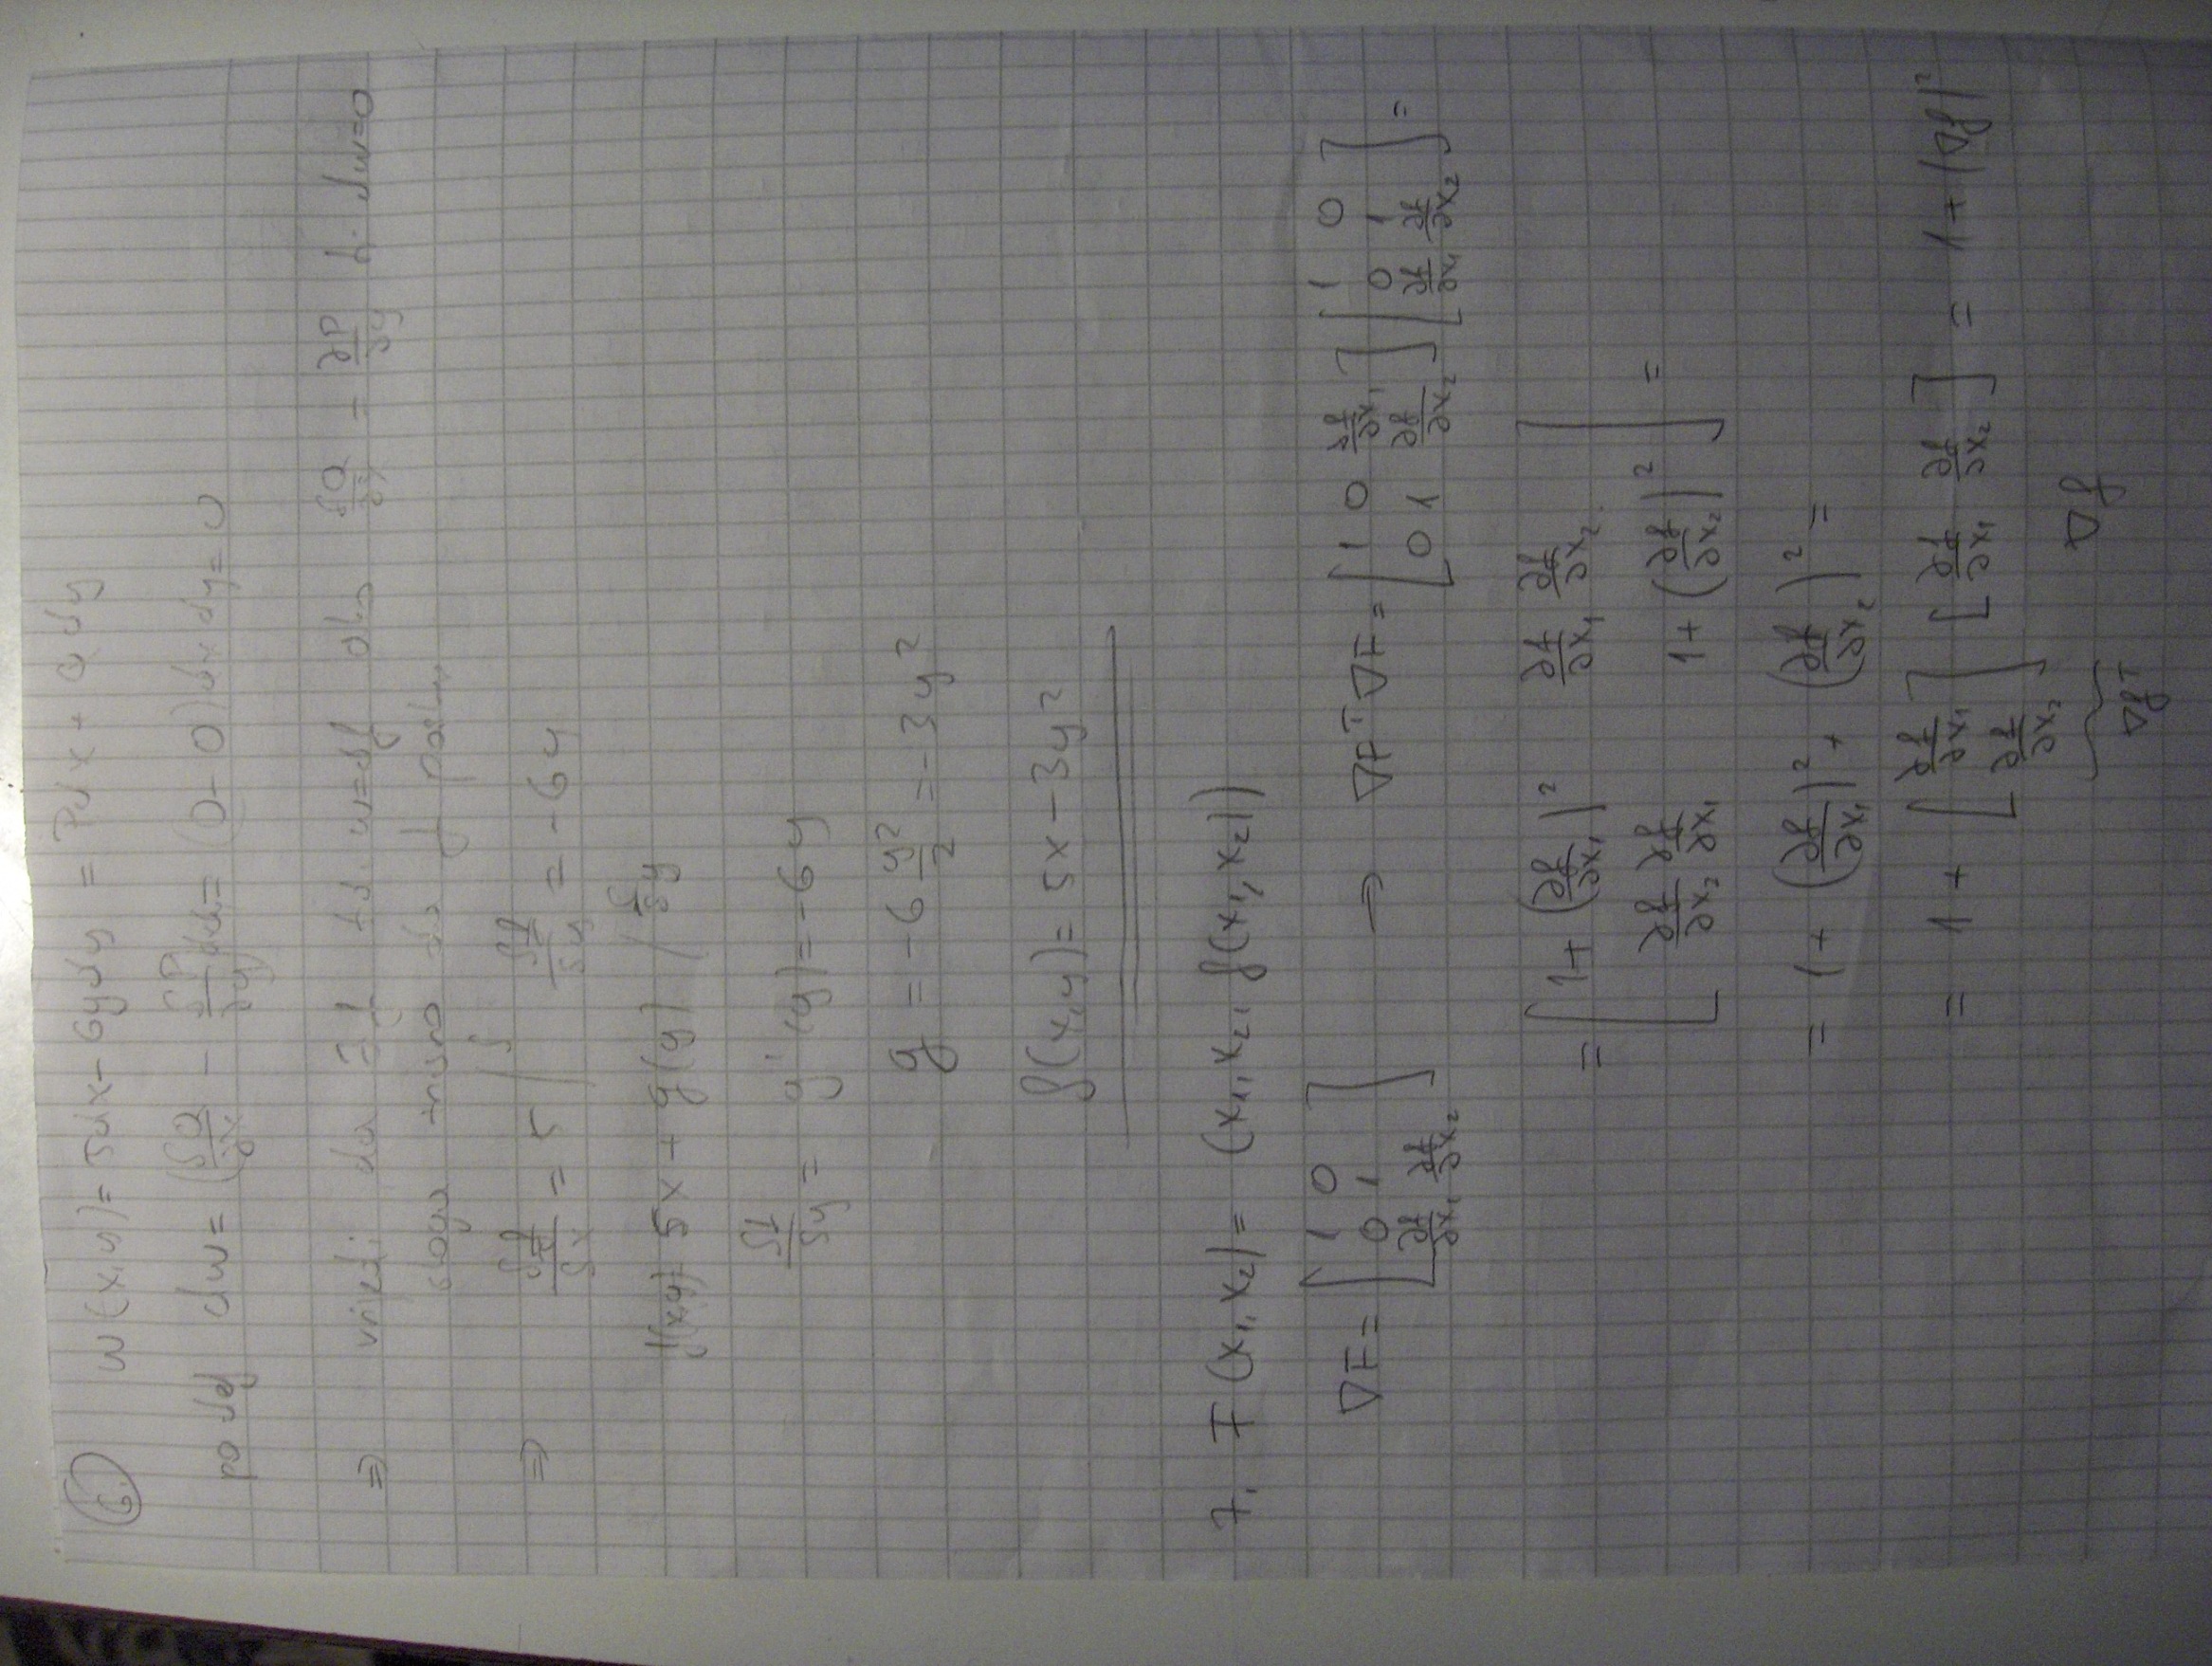 6. w(x,y) = 5dx - 6ydy = Pdx + Qdy
po def dw = (∂Q/∂x - ∂P/∂y) = (0-0)dxdy = 0
⇒ vrijedi da ∃ f w=df ∂Q/∂x = ∂P/∂y dw=0
⇒ ∂f/∂x = 5 /∫ ∂f/∂y = -6y
f(x,y) = 5x + g(y) / ∂/∂y
∂f/∂y = g'(y) = -6y
g = -6 y²/2 = -3y²
f(x,y) = 5x - 3y²
7. F(x₁,x₂) = (x₁,x₂, f(x₁,x₂))
∇F = [1 0; 0 1; ∂f/∂x₁ ∂f/∂x₂] ⇒ ∇Fᵀ∇F = [1 0 ∂f/∂x₁; 0 1 ∂f/∂x₂] [1 0; 0 1; ∂f/∂x₁ ∂f/∂x₂] =
= [1+(∂f/∂x₁)² ∂f/∂x₁ ∂f/∂x₂; ∂f/∂x₂ ∂f/∂x₁ 1+(∂f/∂x₂)²] =
= 1 + (∂f/∂x₁)² + (∂f/∂x₂)² =
= 1 + [∂f/∂x₁; ∂f/∂x₂] [∂f/∂x₁ ∂f/∂x₂] = 1 + |∇f|²
∇fᵀ ∇f